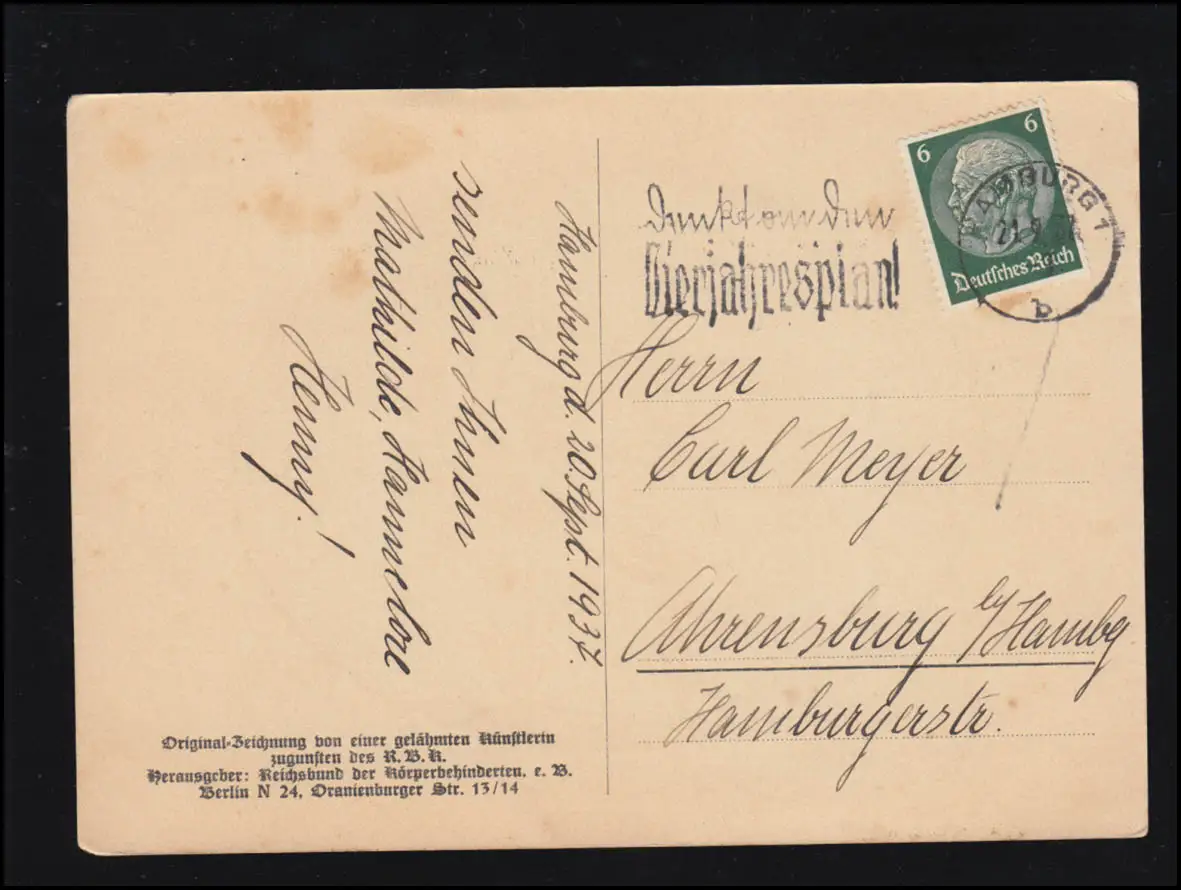 Hamburg d. 20. Sept. 1937.
senden Ihnen
Mathilde, Hannelore
Henny!
Original-Zeichnung von einer gelähmten Künstlerin
zugunsten des R.B.K.
Herausgeber: Reichsbund der Körperbehinderten. e. V.
Berlin N 24, Oranienburger Str. 13/14
Denkt an den
Vierjahresplan!
6
6
Deutsches Reich
HAMBURG 1
b
Herrn
Carl Meyer
Ahrensburg b/Hambg
Hamburgerstr.